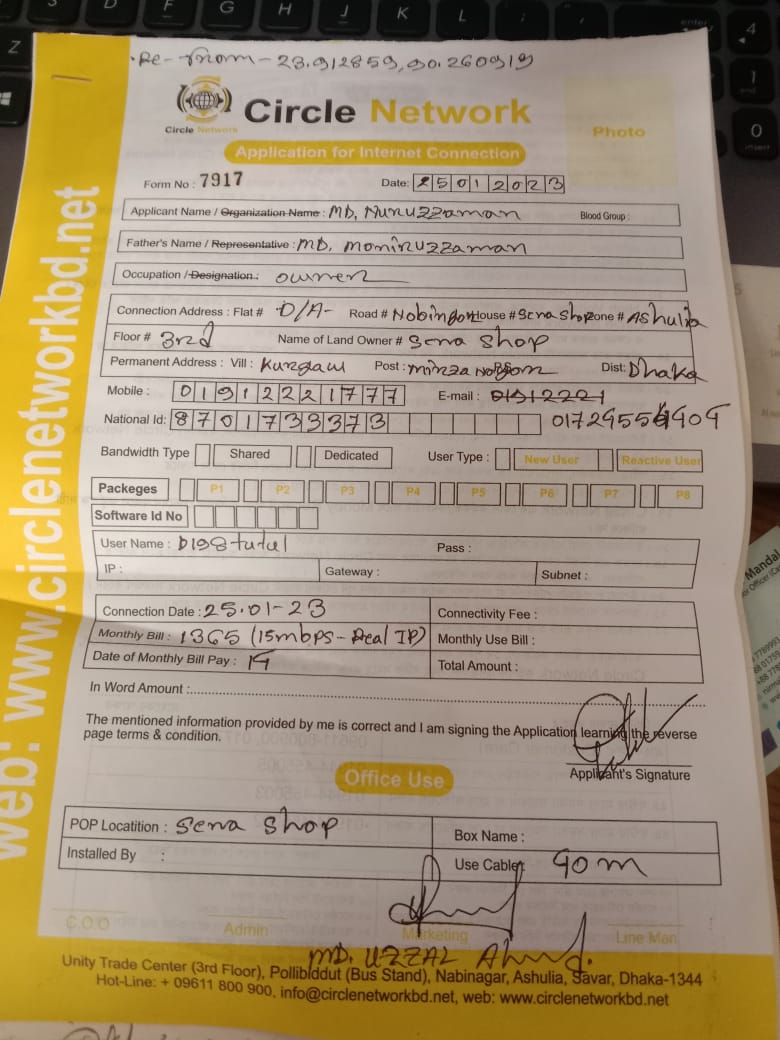 23.912859, 90.260919
Circle Network
Circle Network
Photo
Application for Internet Connection
Form No : 7917
Date: 25012023
Applicant Name / Organization Name : MD, Nuruzzaman
Blood Group :
Father's Name / Representative : MD, Moniruzzaman
Occupation / Designation : owner
Connection Address : Flat # D/A- Road # House # Sena Shop Zone # Ashulia
Floor # 3rd Name of Land Owner # Sena Shop
Permanent Address : Vill : Post : Dist: Dhaka
Mobile : 01912221777 E-mail : 01912221
National Id: 8701733373
Bandwidth Type Shared Dedicated User Type : New User Reactive User
Packeges P1 P2 P3 P4 P5 P6 P7 P8
Software Id No
User Name : Pass :
IP : Gateway : Subnet :
Connection Date : 25.01-23 Connectivity Fee :
Monthly Bill : 1365 (15mbps-Real IP) Monthly Use Bill :
Date of Monthly Bill Pay : Total Amount :
In Word Amount :
The mentioned information provided by me is correct and I am signing the Application learning the reverse
page terms & condition.
Applicant's Signature
Office Use
POP Locatition : Sena Shop Box Name :
Installed By : Use Cable: 90m
C.O.O Admin Marketing Line Man
MD. UZZAL Ahmed.
Unity Trade Center (3rd Floor), Pollibiddut (Bus Stand), Nabinagar, Ashulia, Savar, Dhaka-1344
Hot-Line: + 09611 800 900, info@circlenetworkbd.net, web: www.circlenetworkbd.net
web: www.circlenetworkbd.net
Mandal